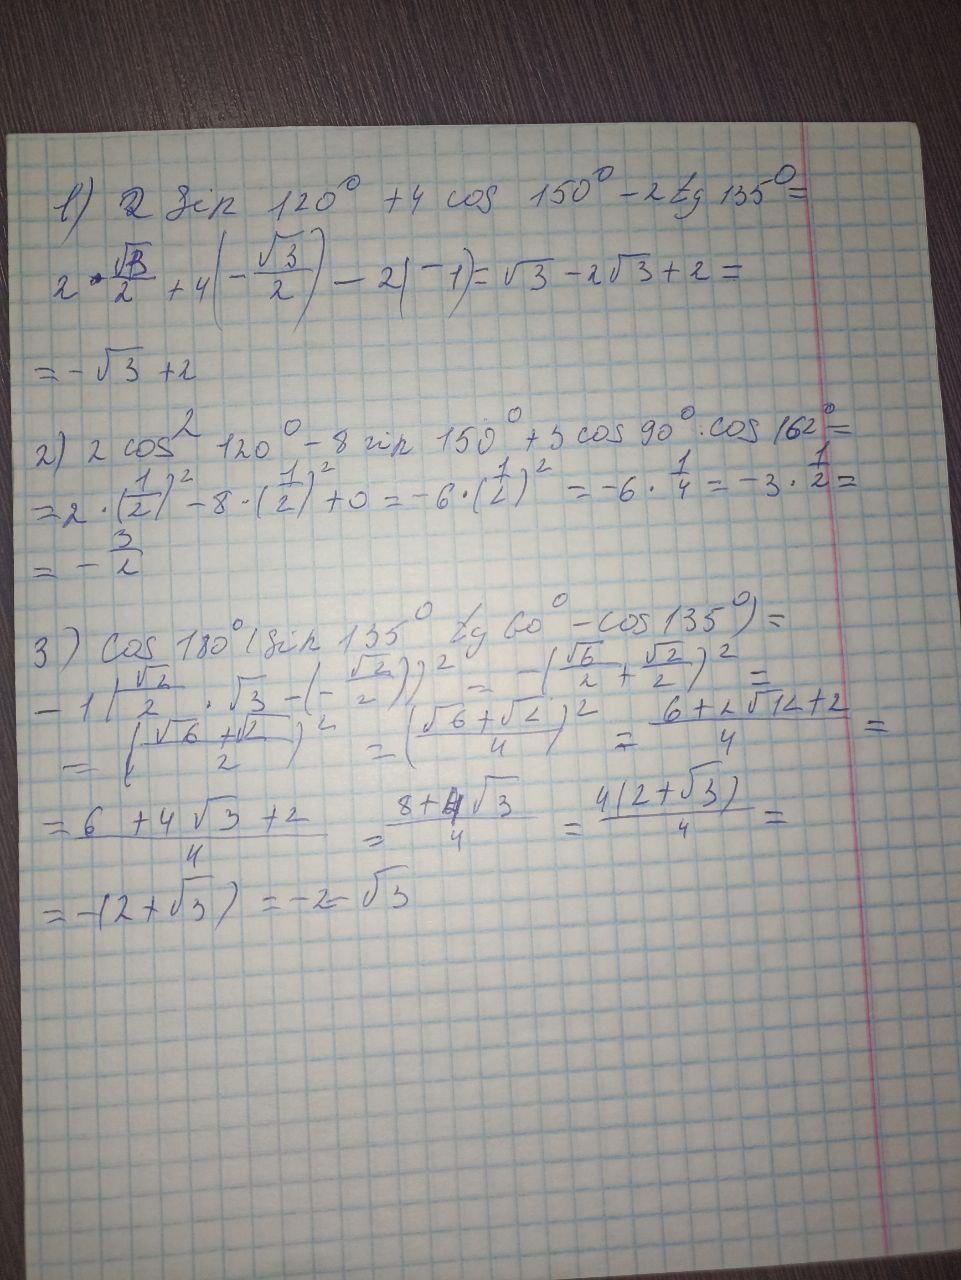 1) 2 sin 120° + 4 cos 150° - 2 tg 135° =
2 · √3/2 + 4(-√3/2) - 2(-1) = √3 - 2√3 + 2 =
= -√3 + 2
2) 2 cos² 120° - 8 sin 150° + 3 cos 90° · cos 162° =
= 2 · (1/2)² - 8 · (1/2)² + 0 = -6 · (1/2)² = -6 · 1/4 = -3 · 1/2 =
= - 3/2
3) cos 180° (sin 135° tg 60° - cos 135°) =
-1(√2/2 · √3 - (-√2/2))² = -(√6/2 + √2/2)² =
= (√6 + √2/2)² = (√6 + √2/4)² = 6 + 2√12 + 2/4 =
= 6 + 4√3 + 2/4 = 8 + 4√3/4 = 4(2 + √3)/4 =
= -(2 + √3) = -2 - √3